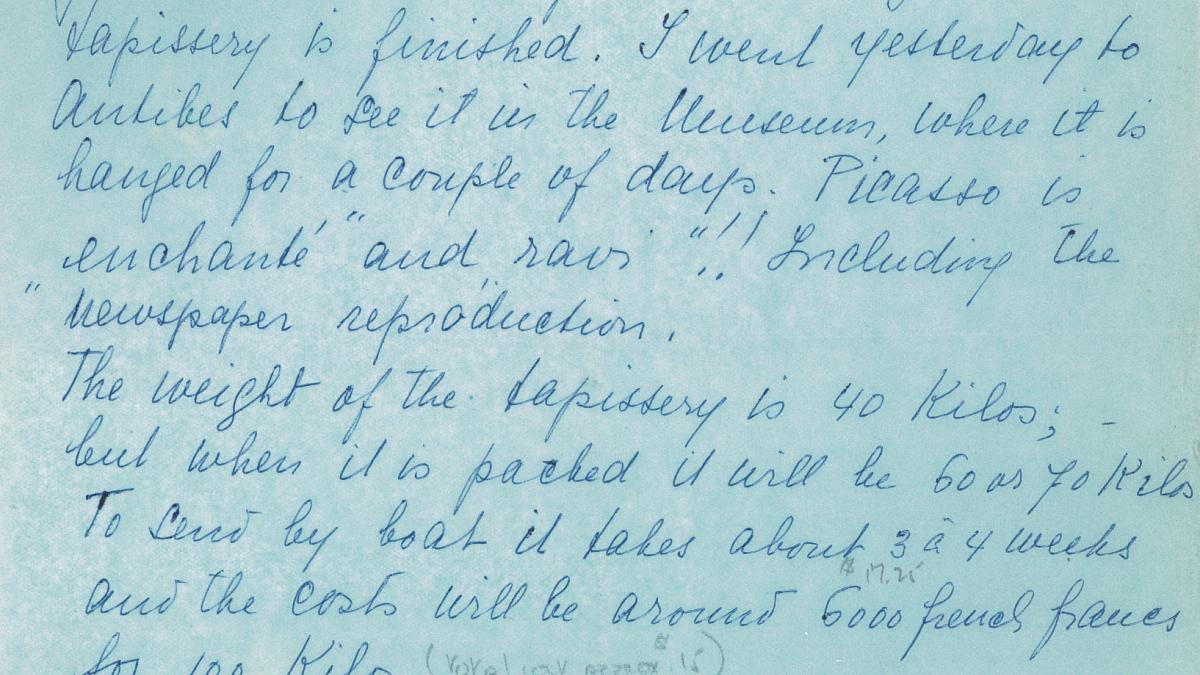 tapissery is finished. I went yesterday to
Antibes to see it in the Museum, where it is
hanged for a couple of days. Picasso is
"enchanté" and "ravi"!! Including the
newspaper reproduction.
The weight of the tapissery is 40 Kilos; -
but when it is packed it will be 60 or 70 Kilos
To send by boat it takes about 3 à 4 weeks
$ 17.25
and the costs will be around 6000 french francs
for 100 Kilo